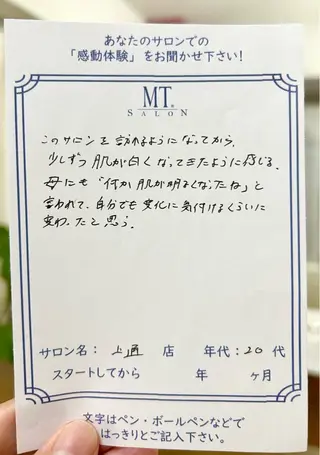 あなたのサロンでの
「感動体験」をお聞かせ下さい!
MT®
SALON
このサロンを訪れるようになってから、
少しずつ肌が白くなってきたように感じる。
母にも「何か肌が明るくなったね」と
言われて、自分でも変化に気付けるくらいに
変わったと思う。
サロン名: 上通 店 年代: 20 代
スタートしてから 年 ヶ月
文字はペン・ボールペンなどで
はっきりとご記入下さい。